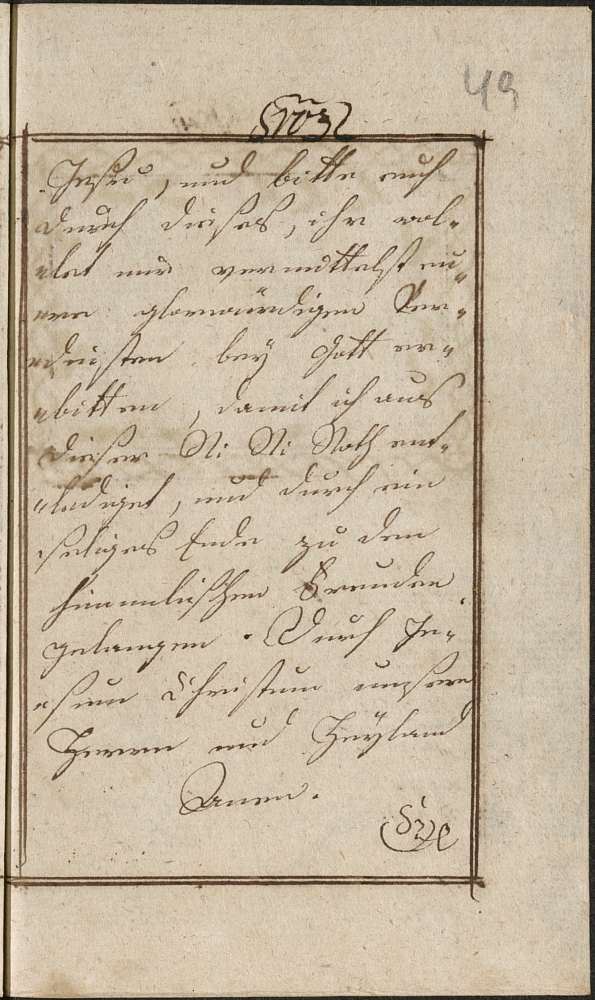 49
Jesu, und bitte euch
durch dieses, ihr wol„
„let mir vermittelst eu„
„ren glorwürdigen Ver„
„diensten bey Gott er„
„bitten, damit ich aus
dieser N: N: Noth ent„
„lediget, und durch ein
seliges Ende zu den
himmlischen Freuden
gelangen. Durch Je„
„sum Christum unsern
Herrn und Heyland
Amen.